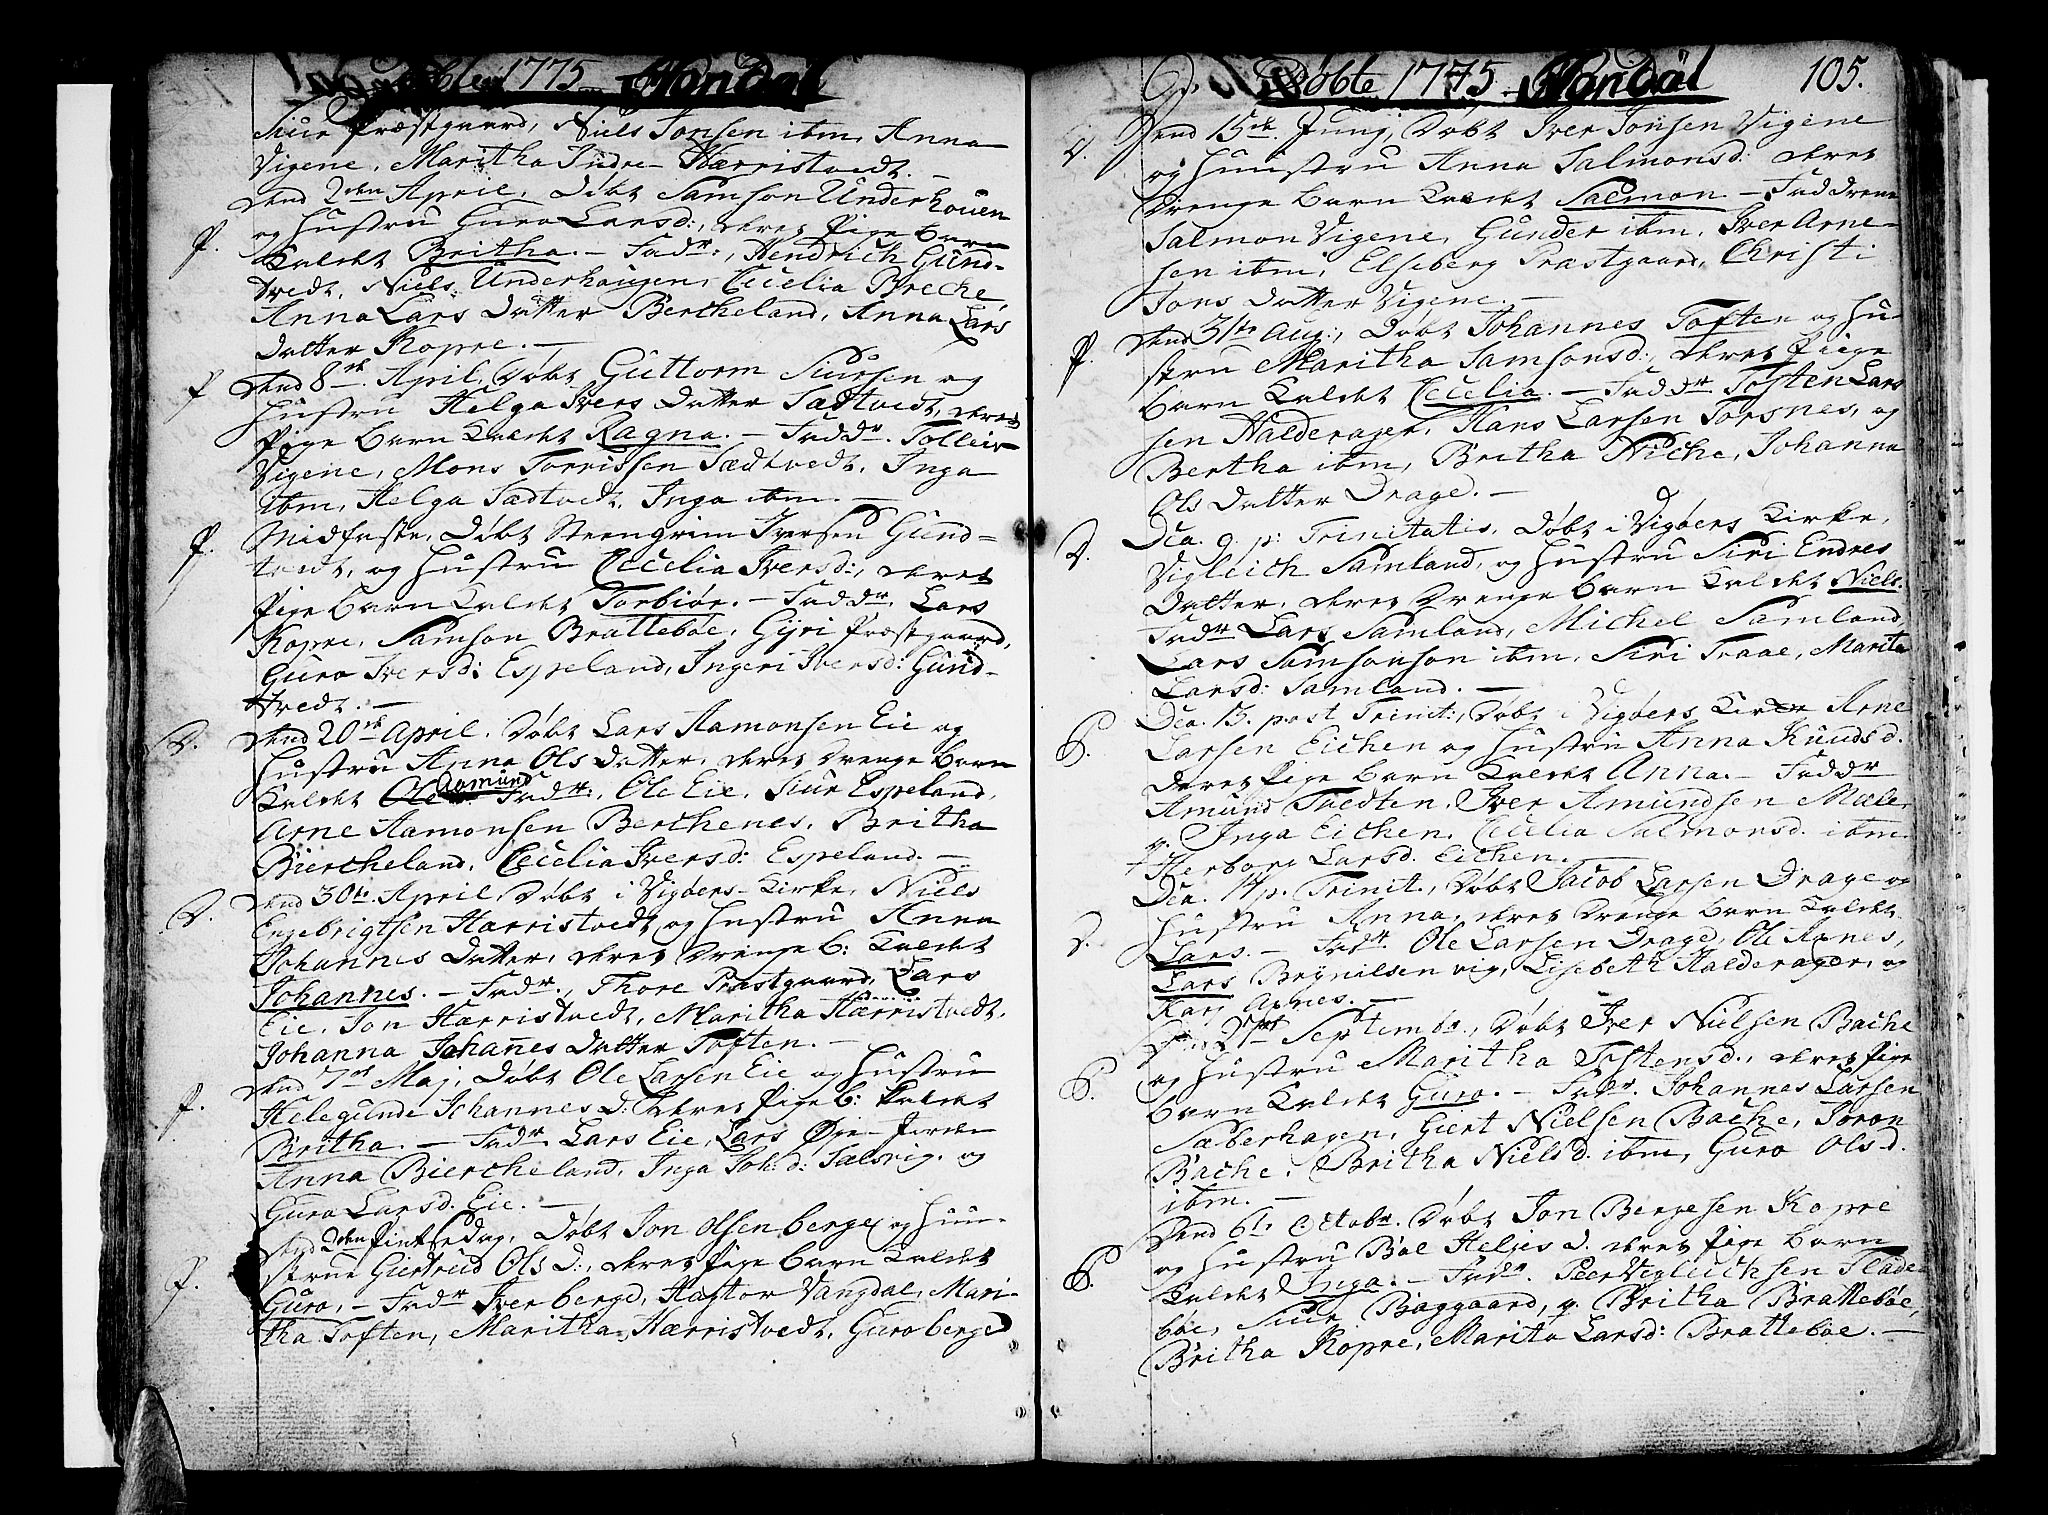 Døbte 1775 Strandal
Siur Præstgaard, Niels Jonsen ibm, Anna
Vigene, Maritha Indre Hærristvedt.
dend 2den April, Døbt Samson Underhouen
P. og Hustru Guro Larsd:, deres Pige barn
kaldet Britha. - Fadr:, Hendrich Gund-
tvedt, Niels Underhaugen, Cecelia Breche,
Anna Lars Datter Bercheland, Anna Lars
Datter Kopre. -
P. dend 8de April, Døbt Guttorm Siursen og
Hustru Helga Ivers Datter Sædtvedt, deres
Pige barn kaldet Ragna. - Faddr. Tolleiv
Vigene, Mons Torrissen Sædtvedt, Inga
ibm, Helga Sædtvedt, Inga ibm. -
P. Midfaste, Døbt Steengrim Iversen Gund-
tvedt, og Hustru Cecelia Iversd:, deres
Pige barn kaldet Torbiør. - Faddr. Lars
Kopre, Samson Brattebøe, Gyri Præstgaard,
Guro Iversd: Espeland, Ingeri Iversd: Gund-
tvedt. -
D. dend 20de April, Døbt Lars Aamonsen Eie og
Hustru Anna Ols Datter, deres Drenge barn
kaldet Ole Aamund Fadr:, Ole Eie, Siur Espeland,
Arne Aamonsen Berchenes, Britha
Biercheland, Cecelia Iversd: Espeland. -
D. dend 30te April, Døbt i Vigøers Kirke, Niels
Engebrigtsen Harristvedt og Hustru Anna
Johannes Datter, deres Drenge b: kaldet
Johannes. - Fadr., Thore Præstgaard, Lars
Eie, Jon Hærristvedt, Maritha Hærristvedt,
Johanna Johanes Datter Toften. -
P. dend 7de Maj, Døbt Ole Larsen Eie og Hustru
Helegunde Johannes d: deres Pige b: kaldet
Britha. - Fadr. Lars Eie, Lars
Anna Biercheland, Inga Joh: d: Salsvig, og
Guro Larsd. Eie. -
P. dend 2den Pintsedag, Døbt Jon Olsen berge og Hu-
strue Giertrud Ols D:, deres Pige barn kaldet
Guro, - Fadr Iver berge, Hagtor Vangdal, Mari-
tha Toften, Maritha Hærristvedt, Guro berge
Døbte 1775 Strandal 105.
D. Dend 15de Junj, Døbt Iver Jonsen Vigene
og Hustru Anna Salmonsd: deres
Drenge barn kaldet Salmon. - Faddrene
Salmon Vigene, Gunder ibm, Iver Arne-
sen ibm, Elseberg Præstgaard, Christi
Jons Datter Vigene. -
P. dend 31te Aug:, Døbt Johannes Toften og Hu-
stru Maritha Samsonsd:, deres Pige
barn kaldet Cecelia. - Faddr. Tosten Lars
sen Halderager, Hans Larsen Torsnes, og
Bertha ibm, Britha Niche, Johanna
Ols Datter Drage. -
D. Dca. 9. p: Trinitatis, Døbt i Vigøers Kirke,
Vigleich Samland, og Hustru Siri Endres
Datter, deres Drenge barn kaldet Niels.
Fadr Lars Samland, Michel Samland,
Lars Samsonson ibm, Siri Traae, Marita
Larsd: Samland. -
P. Dca. 13. post Trinit:, Døbt i Vigøers Kirke Arne
Larsen Eichen og Hustru Anna Knudsd.
deres Pige barn kaldet Anna. - Faddr
Amund Tvedten, Iver Amundsen Mæle,
q. Inga Eichen, Cecelia Salmonsd. ibm.
Herborg Larsd. Eichen. -
D. Dca. 14 p. Trinit., Døbt Jacob Larsen Drage og
Hustru Anna, deres Drenge barn kaldet
Lars. - Fadr. Ole Larsen Drage, Ole Axnes,
Lars Brynilsen vig, Lisebeth Halderager, og
Kari Axnes. -
P. Den 21de Septembr., Døbt Iver Nielsen Bache
og Hustru Maritha Tostensd., deres Pige
barn kaldet Guro. - Fadr. Johannes Larsen
Sæberhagen, Giert Nielsen Bache, Joron
Bache, Britha Nielsd. ibm, Guro Olsd.
ibm. -
P. Dend 6te Octobr. Døbt Jon Bergesen Kopre
og Hustru Boel Heljes d. deres Pige barn
kaldet Inga. - Fadr. Peer Vigleichsen Flade-
bøe, Siur Baggaard, q. Britha Brattebøe,
Britha Kopre, Marita Larsd: Brattebøe. -